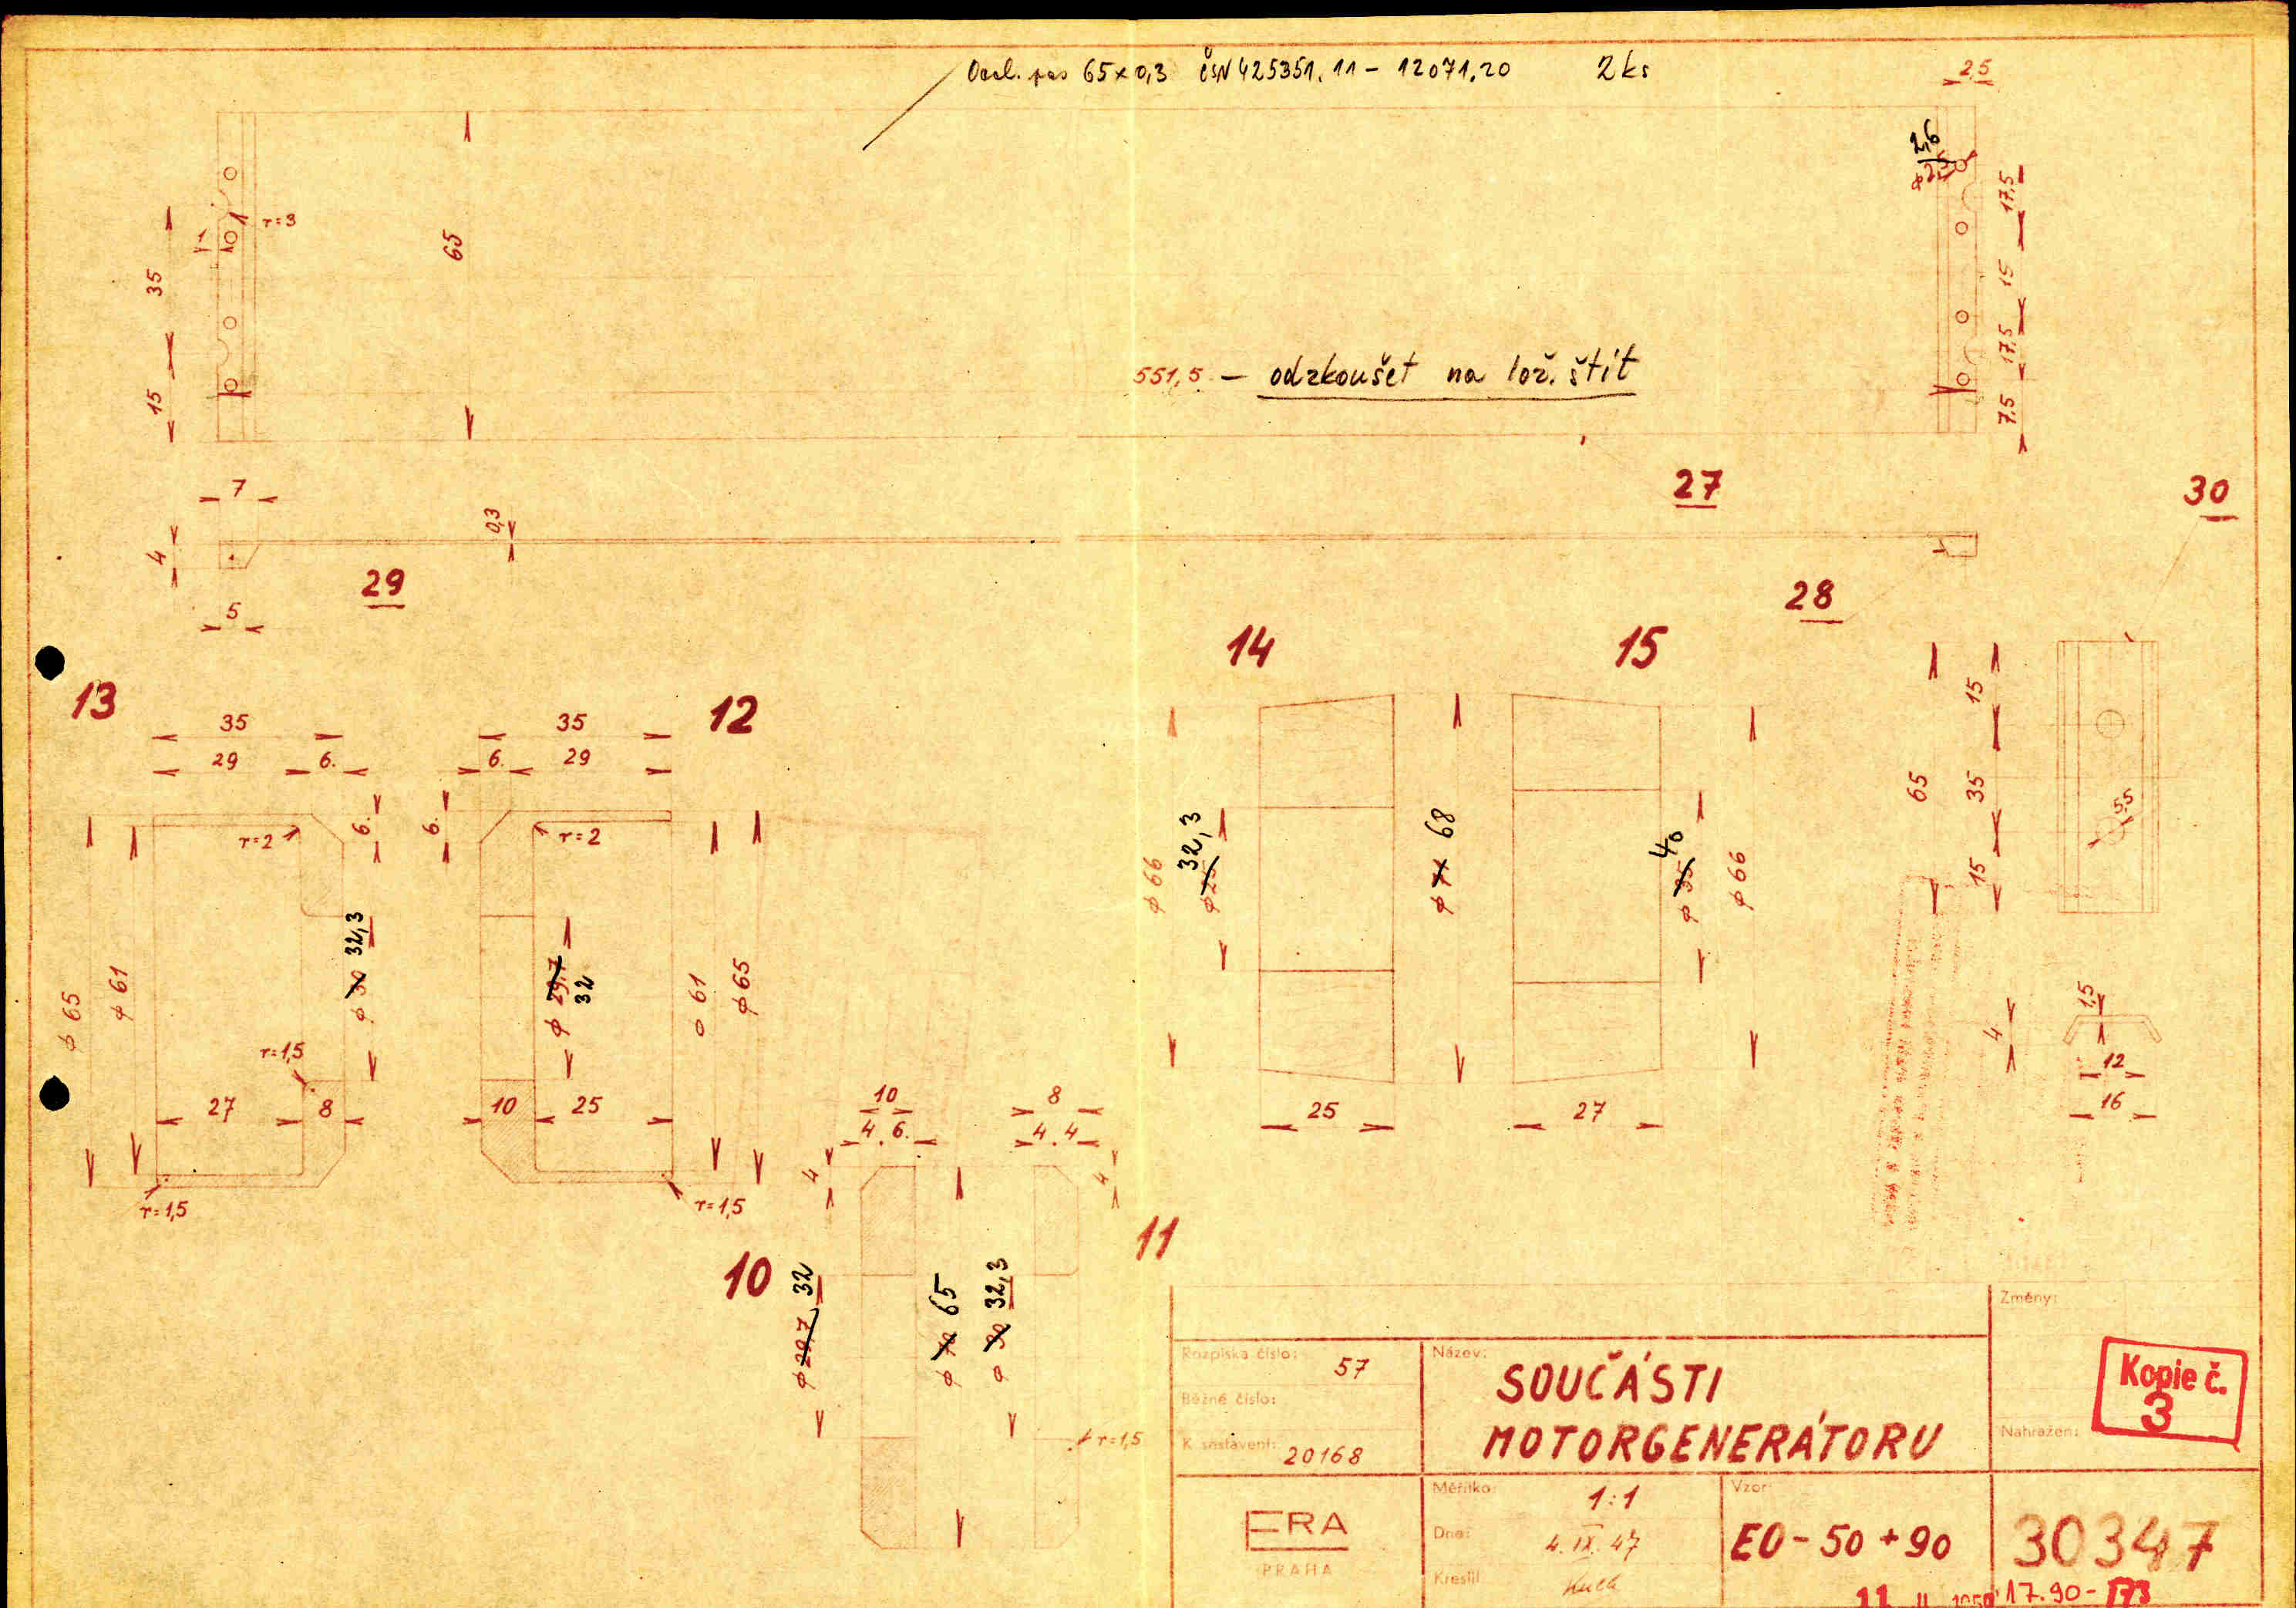 Ocel. pas 65×0,3 ČSN 425351.11 - 12071.20 2 ks
2,5
2,6
φ 2,5
17,5
15
17,5
7,5
r=3
1
35
15
65
551,5 - odzkoušet na lož. štít
27
30
7
0,3
4
29
5
28
13
35
29 6.
6.
r=2
φ 65
φ 61
φ 30 32,3
r=1,5
27 8
r=1,5
12
35
6. 29
6.
r=2
φ 29,7
32
φ 61
φ 65
10 25
r=1,5
10
10
4. 6.
4
φ 29,7 32
φ 70 65
11
8
4. 4
4
φ 30 32,3
r=1,5
14
φ 66
32,3
φ 25
φ 71 68
25
15
40
φ 35
φ 66
27
65
15
35
15
5,5
1,5
4
12
16
Rozpiska číslo: 57
Běžné číslo:
K sestavení: 20168
Název:
SOUČÁSTI
MOTORGENERÁTORU
Změny:
Nahražen:
Kopie č.
3
ERA
PRAHA
Měřítko: 1:1
Dne: 4. IX. 47
Kreslil
Vzor:
EO - 50 + 90
30347
11 II 1950
17.90 - 173